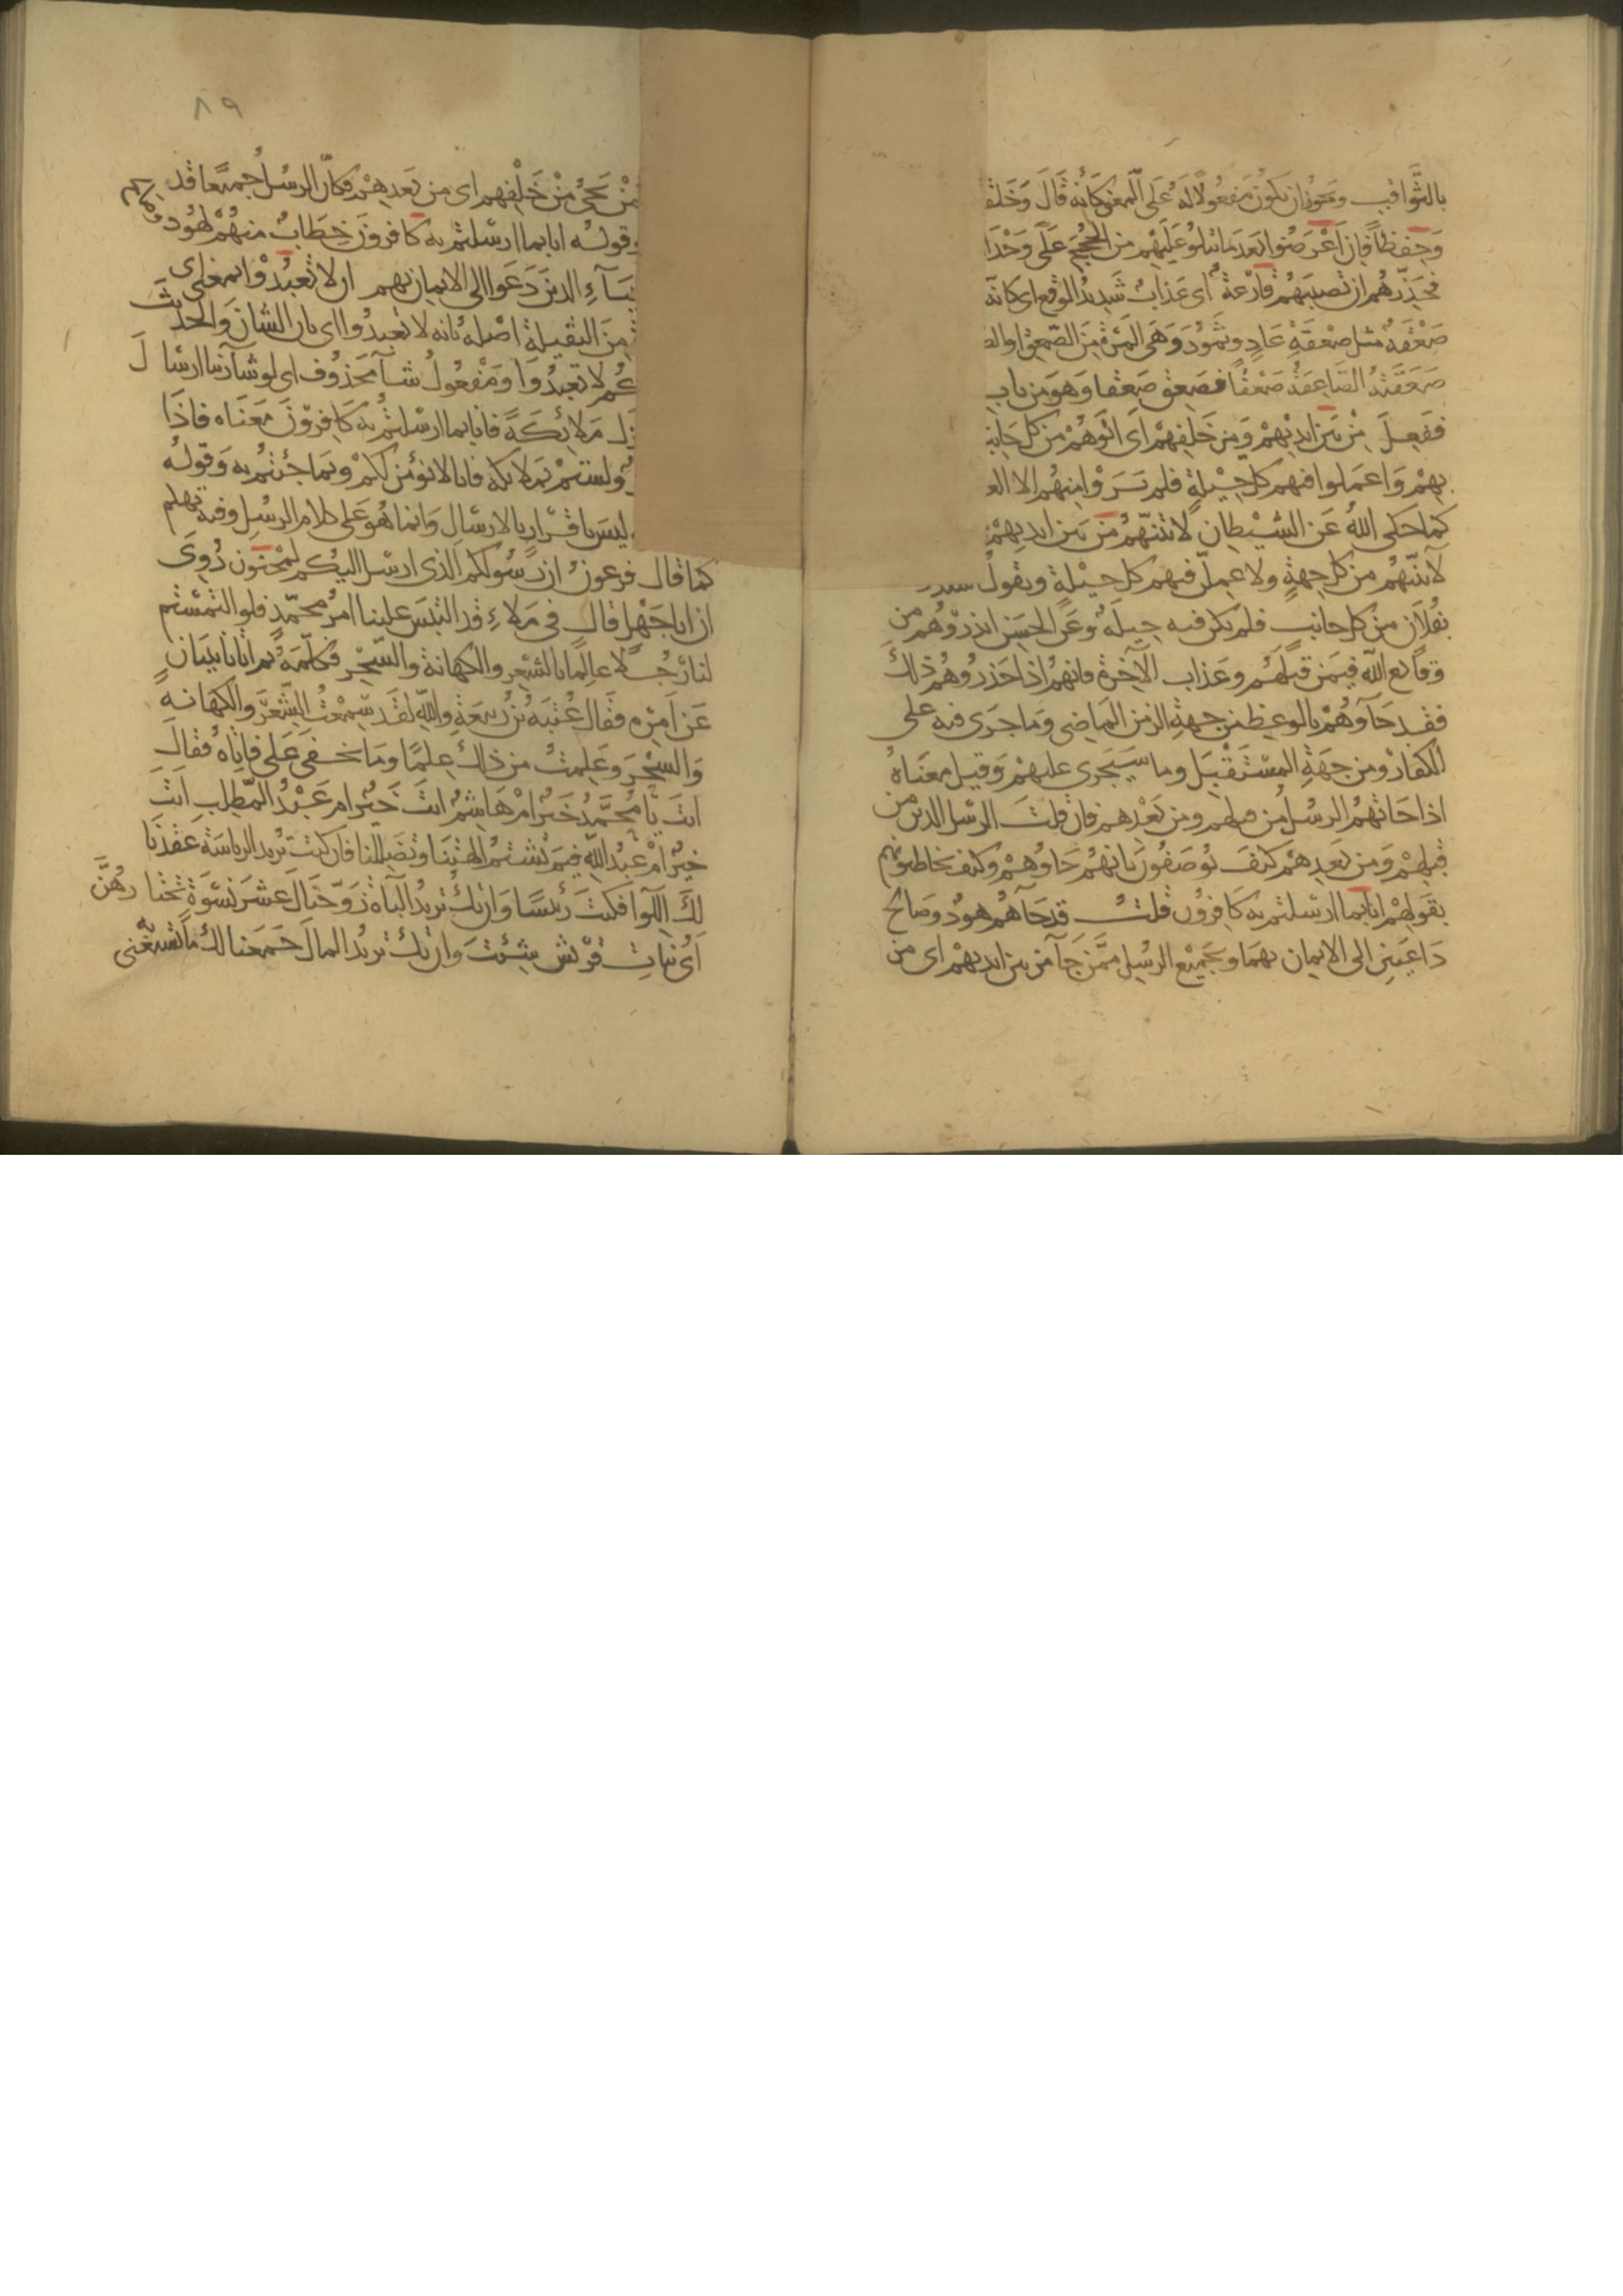 بالثواقب ويجوز ان يكون مفعولا له على المعنى كانه قال وخلقـ
وحفظا فان اعرضوا بعد ما تتلو عليهم من الحجج على وحدا
فحذرهم ان تصيبهم قارعة اى عذاب شديد الوقع اى كانه
صعقة مثل صعقة عاد وثمود وهى المرة من الصعق او الصـ
صعقته الصاعقة صعقا فصعق صعقا وهو من باب
ففعل من بين ايديهم ومن خلفهم اى اتوهم من كل جانب
بهم واعملوا فيهم كل حيلة فلم يروا منهم الا العـ
كما حكى الله عن الشيطان لاتينهم من بين ايديهم
لآتينهم من كل جهة ولاعملن فيهم كل حيلة ويقول
بفلان من كل جانب فلم يكن فيه حيلة وعن الحسن انذروهم من
وقائع الله فيمن قبلهم وعذاب الآخرة فانهم اذا حذروهم ذلك
فقد جاؤهم بالوعظ من جهة الزمن الماضى وما جرى فيه على
الكفار ومن جهة المستقبل وما سيجرى عليهم وقيل معناه
اذا جاءتهم الرسل من قبلهم ومن بعدهم فان قلت الرسل الذين من
قبلهم ومن بعدهم كيف يوصفون بانهم جاؤهم وكيف يخاطبونهم
بقولهم انا بما ارسلتم به كافرون قلت قد جآهم هود وصالح
داعيين الى الايمان بهما وبجميع الرسل ممن جآ من بين ايديهم اى من
من يجئ من خلفهم اى من بعدهم فكان الرسل جميعا قد جاؤهم
وقوله انا بما ارسلتم به كافرون خطاب منهم لهود
نبيآء الذين دعوا الى الايمان بهم ان لا تعبدوا بمعنى اى
من الثقيلة اصله بانه لا تعبدوا اى بان الشان والحديث
لا تعبدوا ومفعول شآ محذوف اى لو شآ ربنا ارسال
ملائكة فانا بما ارسلتم به كافرون معناه فاذا
ولستم بملائكة فانا لا نؤمن لكم وبما جئتم به وقوله
ليس باقرار بالارسال وانما هو على كلام الرسل وفيه تهكم
كما قال فرعون ان رسولكم الذى ارسل اليكم لمجنون روى
ان ابا جهل قال فى ملاء قد التبس علينا امر محمد فلو التمستم
لنا رجلا عالما بالشعر والكهانة والسحر فكلمه ثم اتانا ببيان
عن امره فقال عتبة بن ربيعة والله لقد سمعت الشعر والكهانه
والسحر وعلمت من ذلك علما وما يخفى على فاتاه فقال
انت يا محمد خير ام هاشم انت خير ام عبد المطلب انت
خير ام عبد الله فيم تشتم الهتنا وتضللنا فان كنت تريد الرياسة عقدنا
لك اللوا فكنت رئيسا وان تك تريد الباه زوجناك عشر نسوة تختارهن
اى بنات قريش شئت وان تك تريد المال جمعنا لك ما تستغنى به